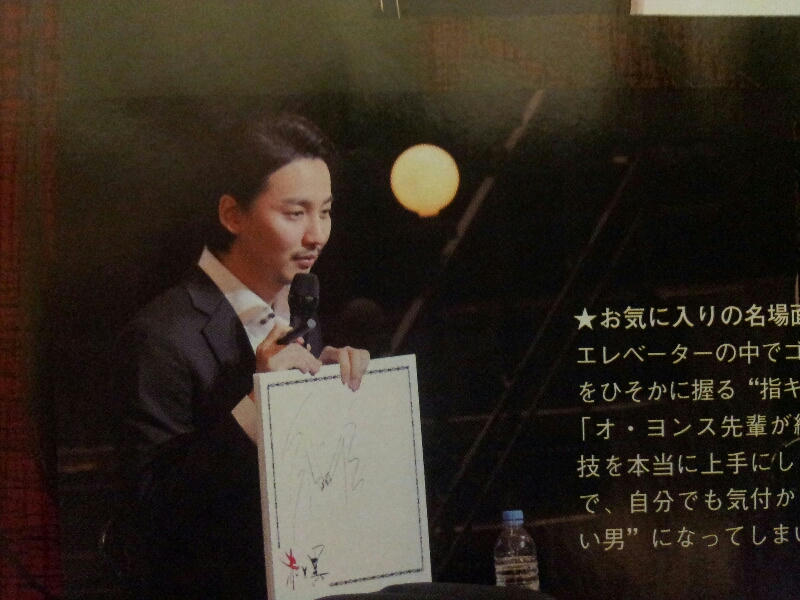 ★お気に入りの名場面
エレベーターの中でゴ
をひそかに握る“指キ
「オ・ヨンス先輩が
技を本当に上手にし
で、自分でも気付か
い男”になってしまい